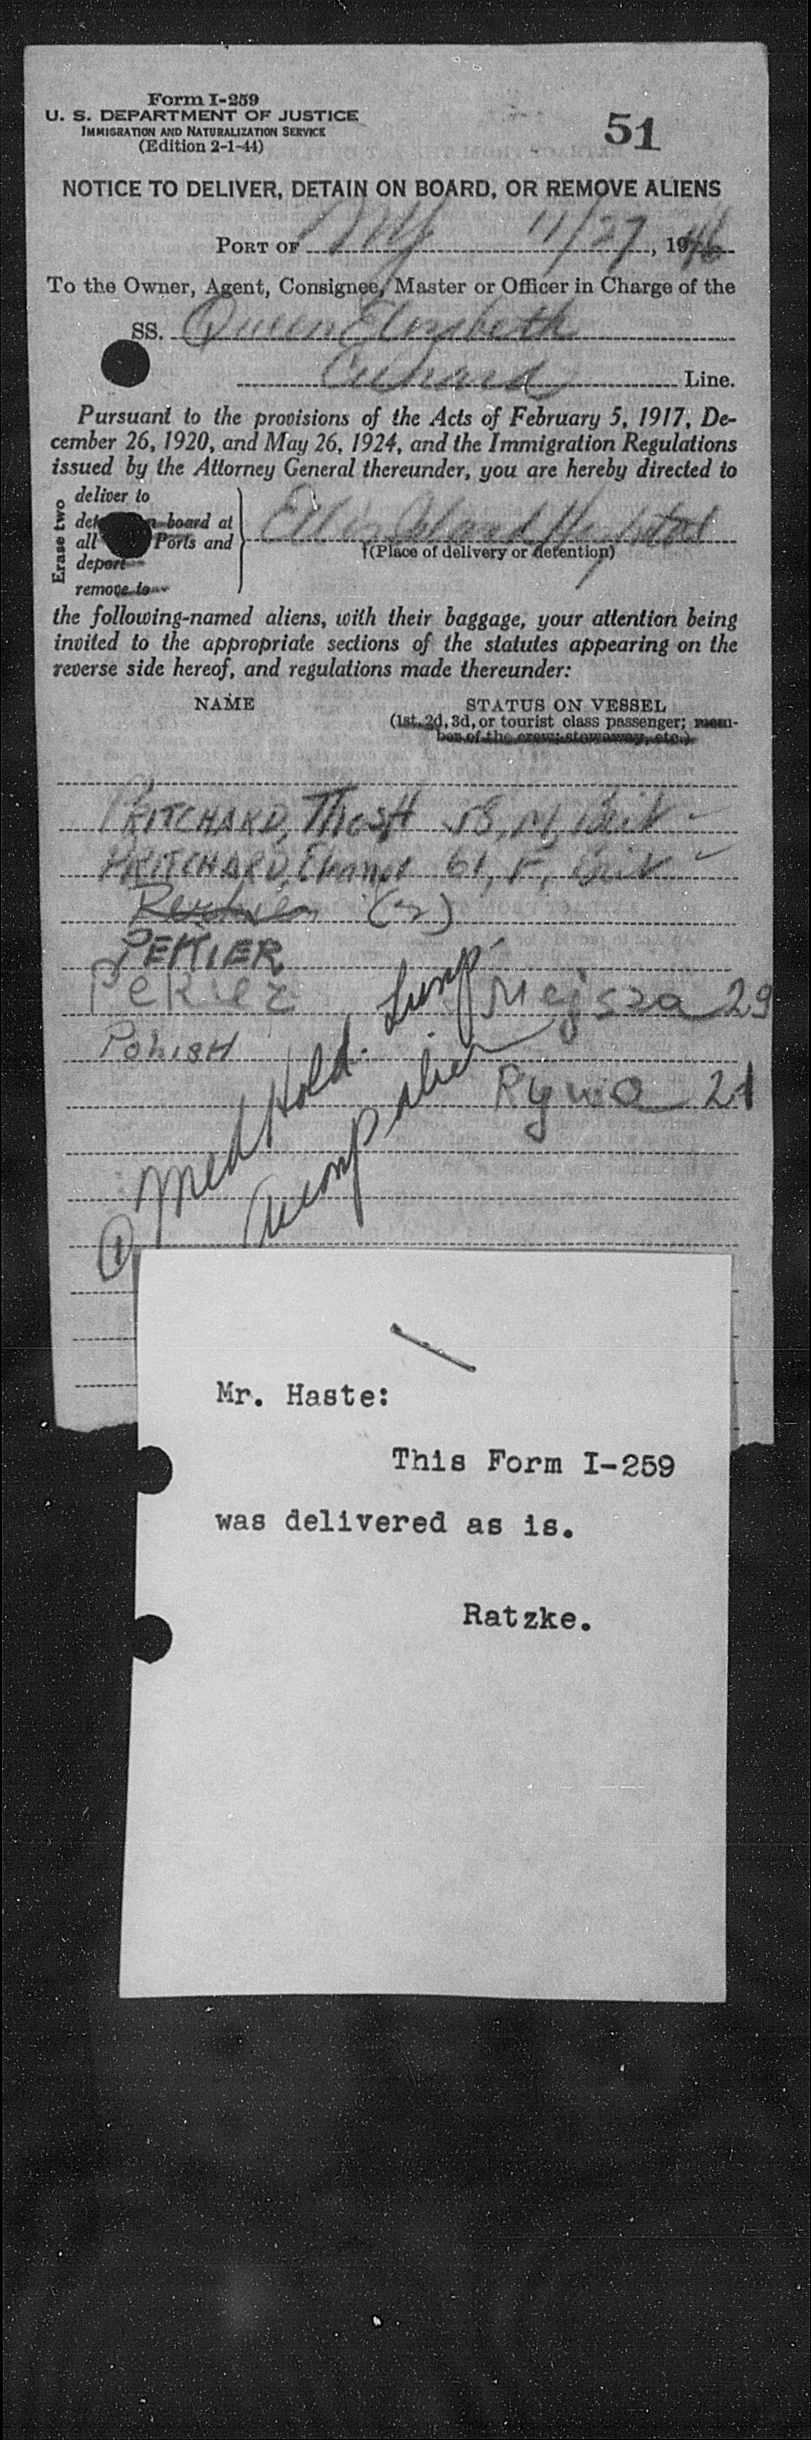 Form I-259
U. S. DEPARTMENT OF JUSTICE
IMMIGRATION AND NATURALIZATION SERVICE
(Edition 2-1-44)
51
NOTICE TO DELIVER, DETAIN ON BOARD, OR REMOVE ALIENS
PORT OF NY 11/27, 1946
To the Owner, Agent, Consignee, Master or Officer in Charge of the
SS. Queen Elizabeth
Cunard Line.
Pursuant to the provisions of the Acts of February 5, 1917, De-
cember 26, 1920, and May 26, 1924, and the Immigration Regulations
issued by the Attorney General thereunder, you are hereby directed to
Erase two
deliver to
board at
all Ports and
deport
remove to
Ellis Island Hospital
(Place of delivery or detention)
the following-named aliens, with their baggage, your attention being
invited to the appropriate sections of the statutes appearing on the
reverse side hereof, and regulations made thereunder:
NAME STATUS ON VESSEL
(1st, 2d, 3d, or tourist class passenger; mem-
ber of the crew; stowaway, etc.)
PRITCHARD, Thos H 58, M, Brit
PRITCHARD, 61, F, Brit
(2)
PEKIER
Pekier Mejsza 29
POLISH
Rywa 21
① Med Hold.
Accomp alien
Mr. Haste:
This Form I-259
was delivered as is.
Ratzke.